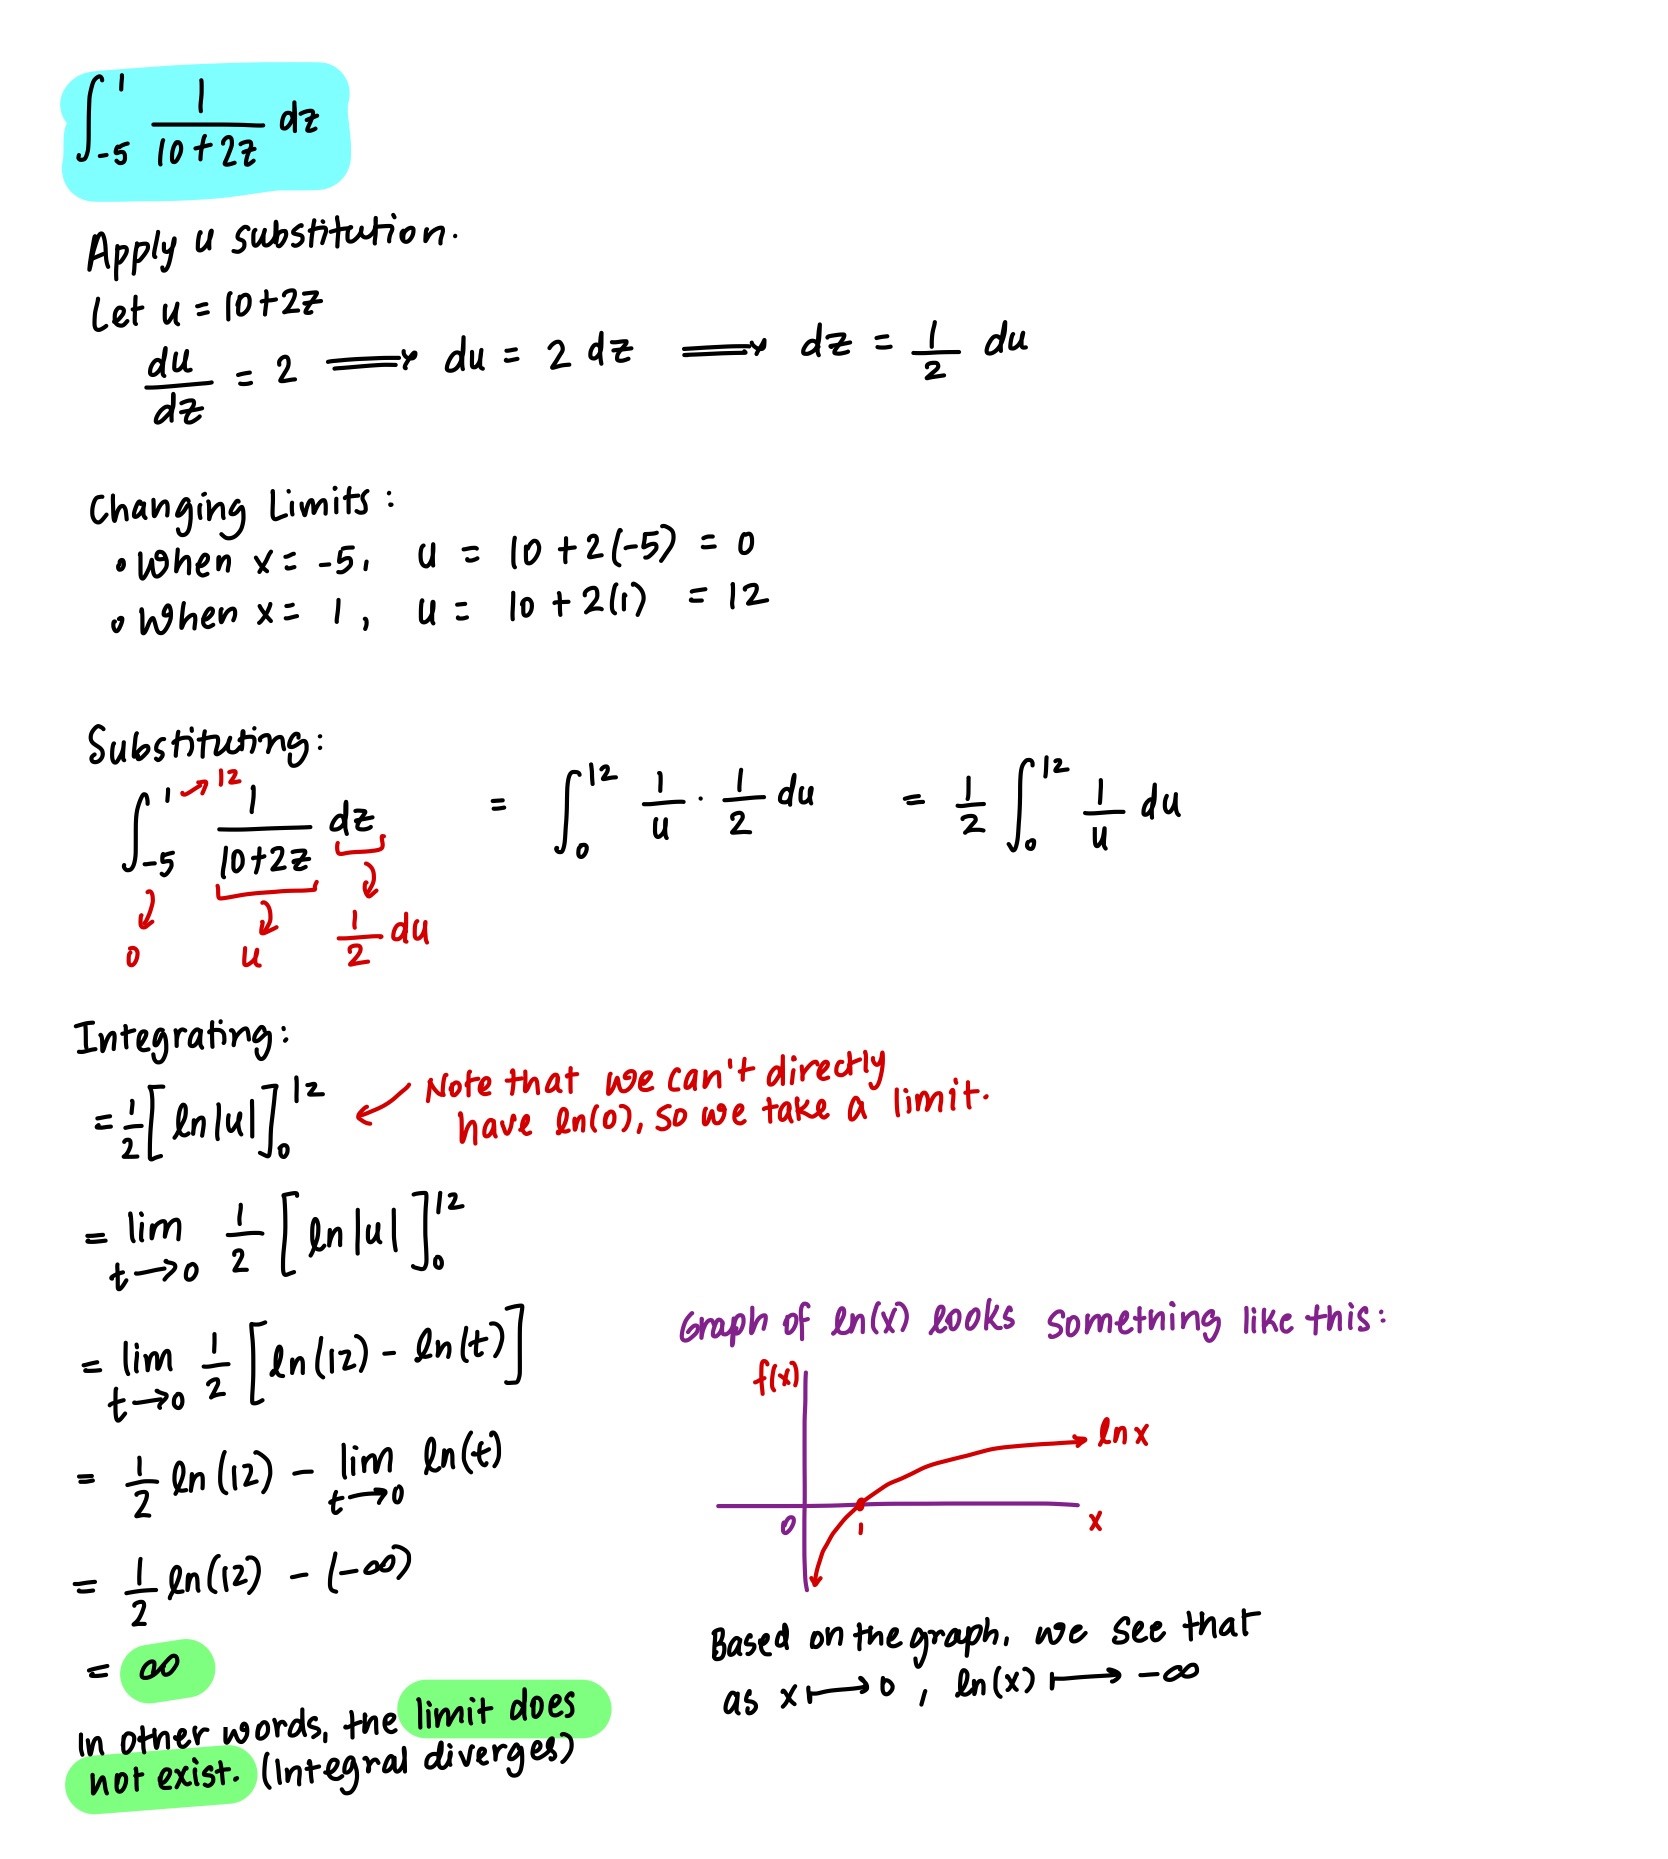 ∫_{-5}^{1} 1/(10+2z) dz
Apply u substitution.
Let u = 10+2z
du/dz = 2 ⟹ du = 2 dz ⟹ dz = 1/2 du
Changing Limits:
• When x = -5, u = 10 + 2(-5) = 0
• When x = 1, u = 10 + 2(1) = 12
Substituting:
∫_{-5}^{1} 1/(10+2z) dz = ∫_{0}^{12} 1/u · 1/2 du = 1/2 ∫_{0}^{12} 1/u du
→ 12
0 u 1/2 du
Integrating:
= 1/2 [ln|u|]_{0}^{12}
Note that we can't directly
have ln(0), so we take a limit.
= lim_{t→0} 1/2 [ln|u|]_{0}^{12}
= lim_{t→0} 1/2 [ln(12) - ln(t)]
= 1/2 ln(12) - lim_{t→0} ln(t)
= 1/2 ln(12) - (-∞)
= ∞
In other words, the limit does
not exist. (Integral diverges)
Graph of ln(x) looks something like this:
f(x)
ln x
0 1 x
Based on the graph, we see that
as x ↦ 0, ln(x) ↦ -∞